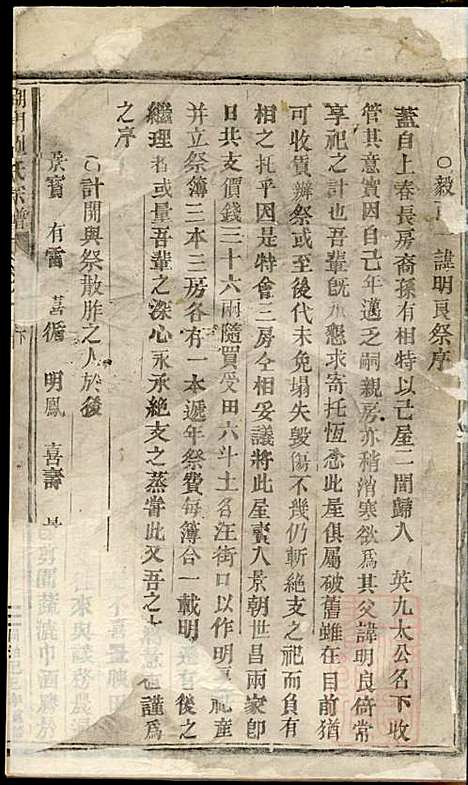 ○毅 諱明良祭序
蓋自上春長房裔孫有相特以己屋二間歸入 英九太公名下收
管其意實因自己年邁乏嗣親房亦稍淯寒欲為其父諱明良倚常
享祀之計也吾輩旣承懇求寄托恆悉此屋俱屬破舊雖在目前猶
可收賃辦祭或至後代未免塌失毀傷不幾仍斬絶支之祀而負有
相之托乎因是特會三房仝相妥議將此屋賣入景朝世昌兩家卽
日共支價錢三十六兩隨買受田六斗土名汪街口以作明良祀產
并立祭簿三本三房各有一本遞年祭費每簿合一載明 有後之
繼理者或量吾輩之深心永承絶支之蒸嘗此又吾之 也謹為
之序
○計開與祭散胙之人於後
癸寶 有富 喜循 明鳳 喜壽
湖 氏宗譜 下